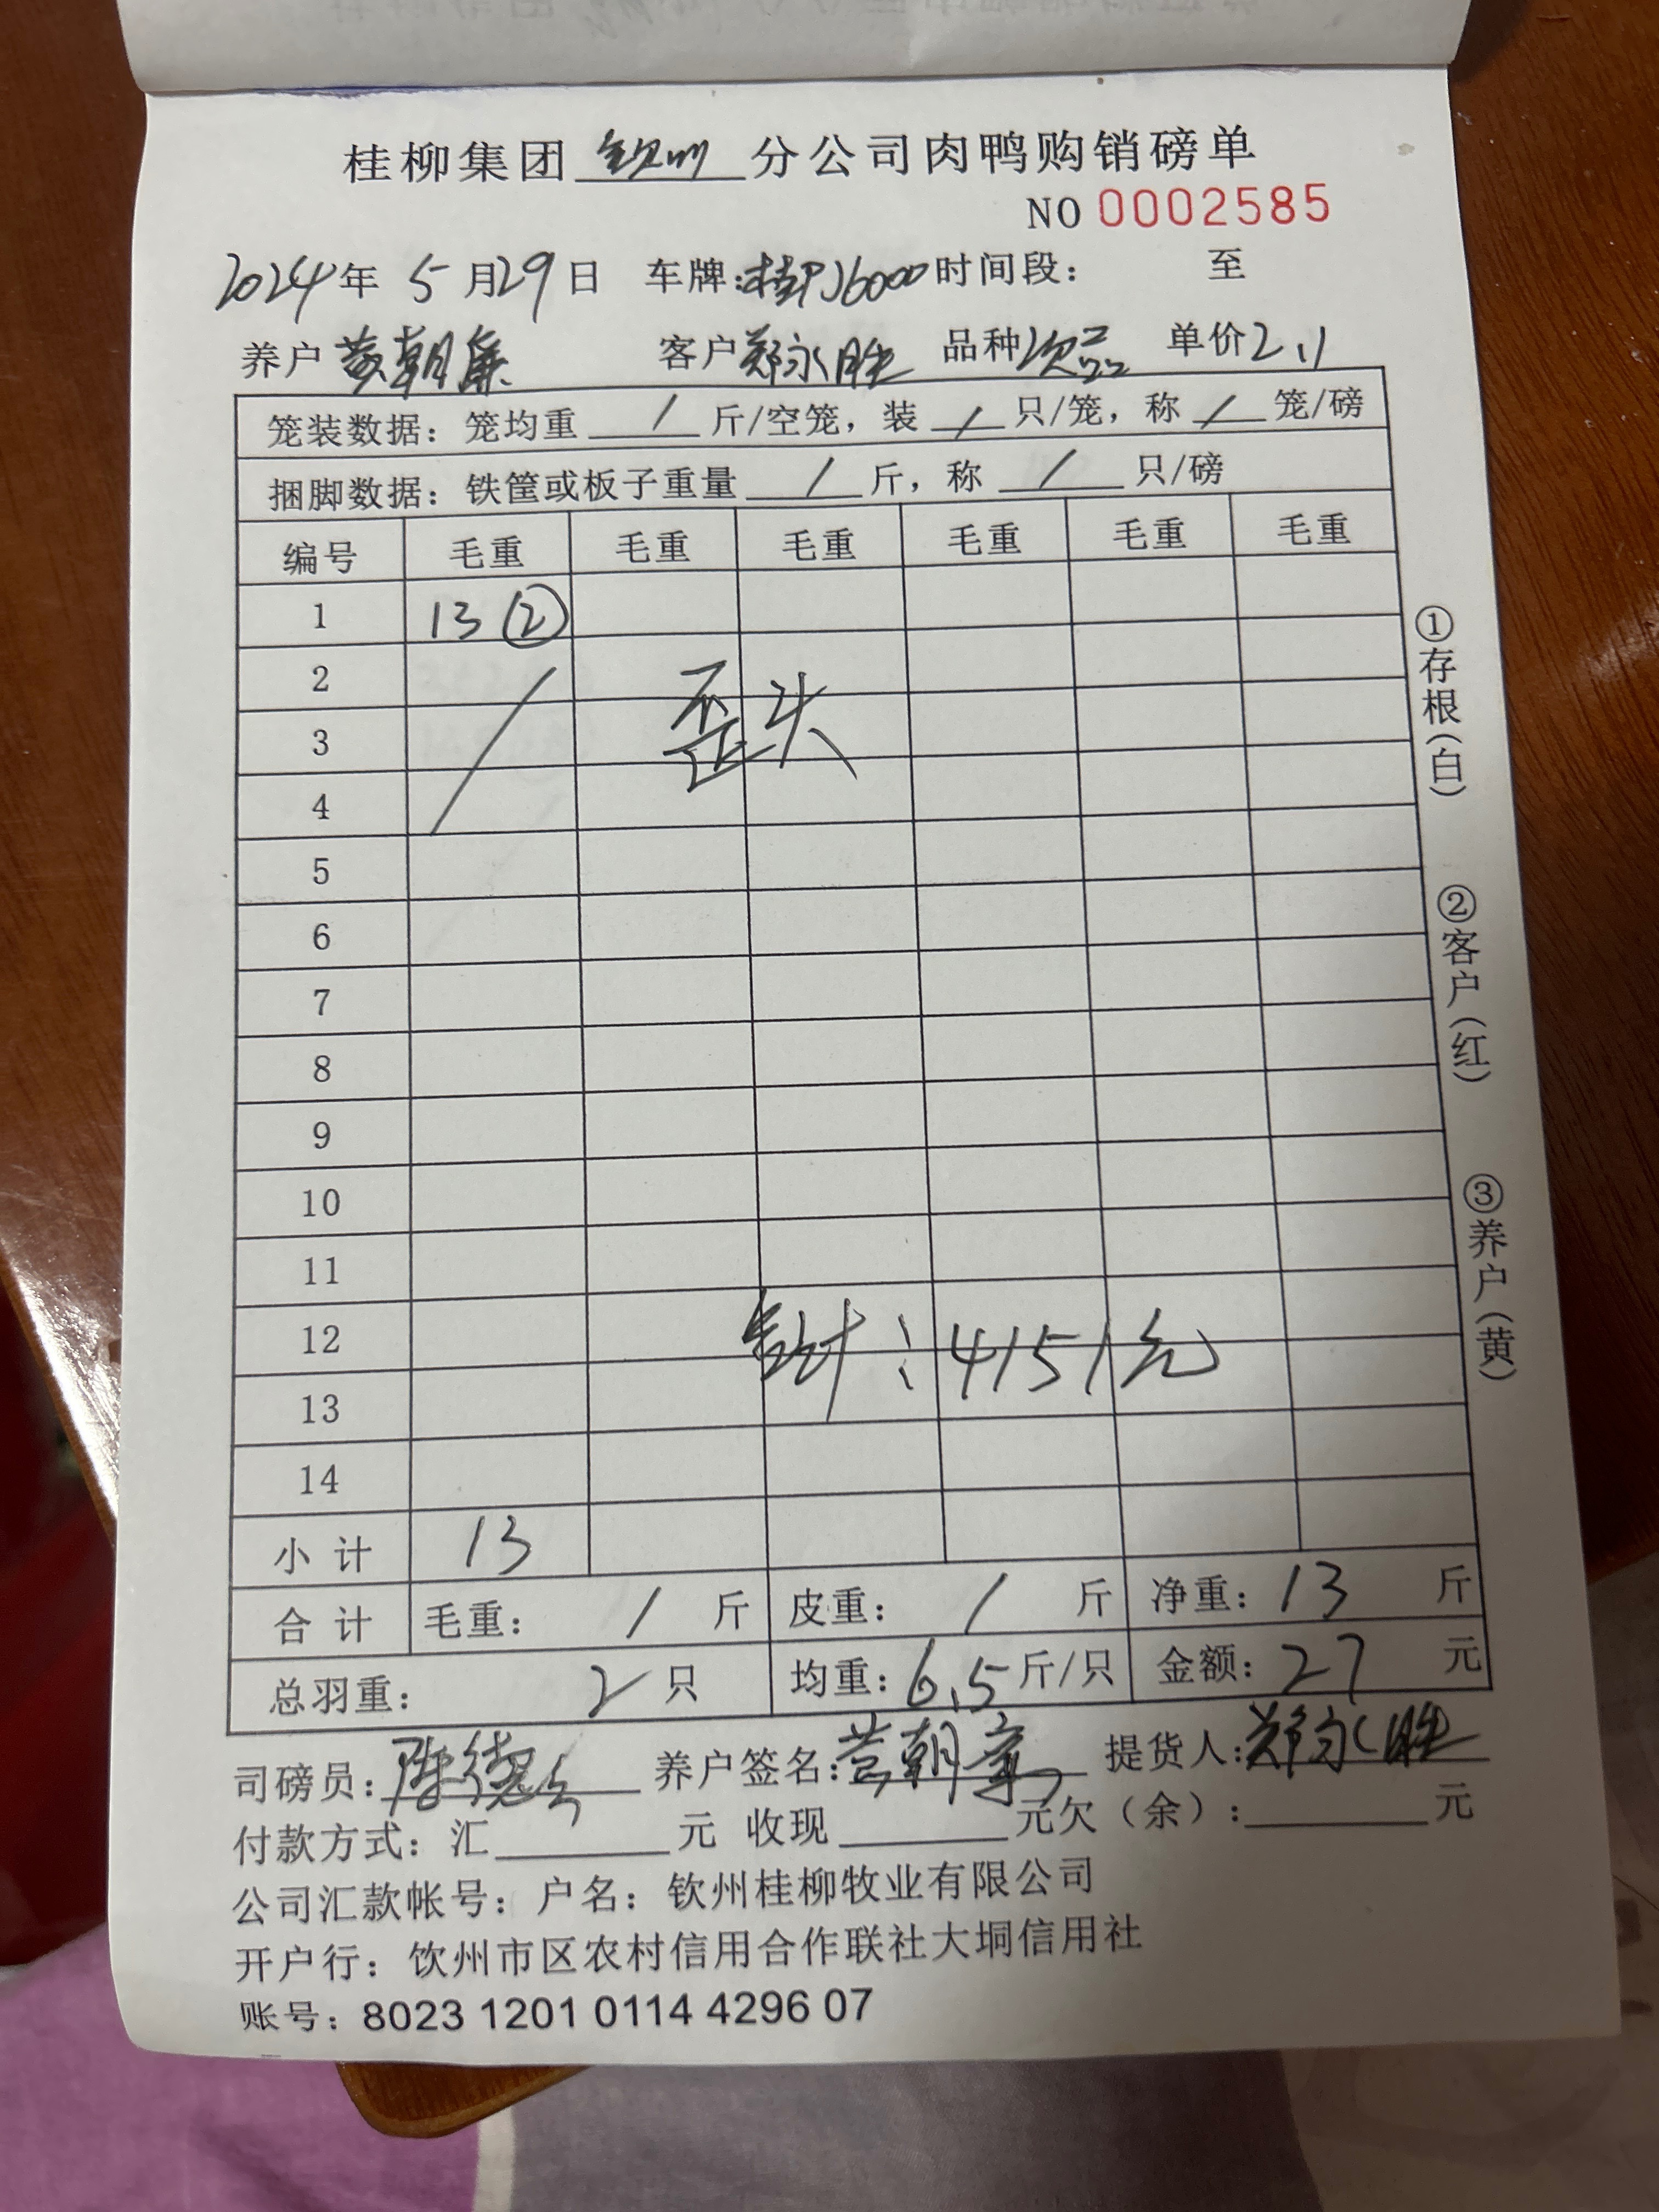 桂柳集团 钦州 分公司肉鸭购销磅单
NO 0002585
2024年 5月29日 车牌:桂PJ6000 时间段: 至
养户 黄朝 客户 郑永胜 品种 次品 单价 2.1
笼装数据: 笼均重 / 斤/空笼, 装 / 只/笼, 称 / 笼/磅
捆脚数据: 铁筐或板子重量 / 斤, 称 / 只/磅
编号 毛重 毛重 毛重 毛重 毛重 毛重
1 13 ②
2
3 歪头
4
5
6
7
8
9
10
11
12 合计:4151元
13
14
小计 13
合计 毛重: / 斤 皮重: / 斤 净重: 13 斤
总羽重: 2 只 均重: 6.5 斤/只 金额: 27 元
司磅员: 陈德 养户签名: 黄朝 提货人: 郑永胜
付款方式: 汇 元 收现 元 欠(余): 元
公司汇款帐号: 户名: 钦州桂柳牧业有限公司
开户行: 饮州市区农村信用合作联社大垌信用社
账号: 8023 1201 0114 4296 07
①存根(白)
②客户(红)
③养户(黄)